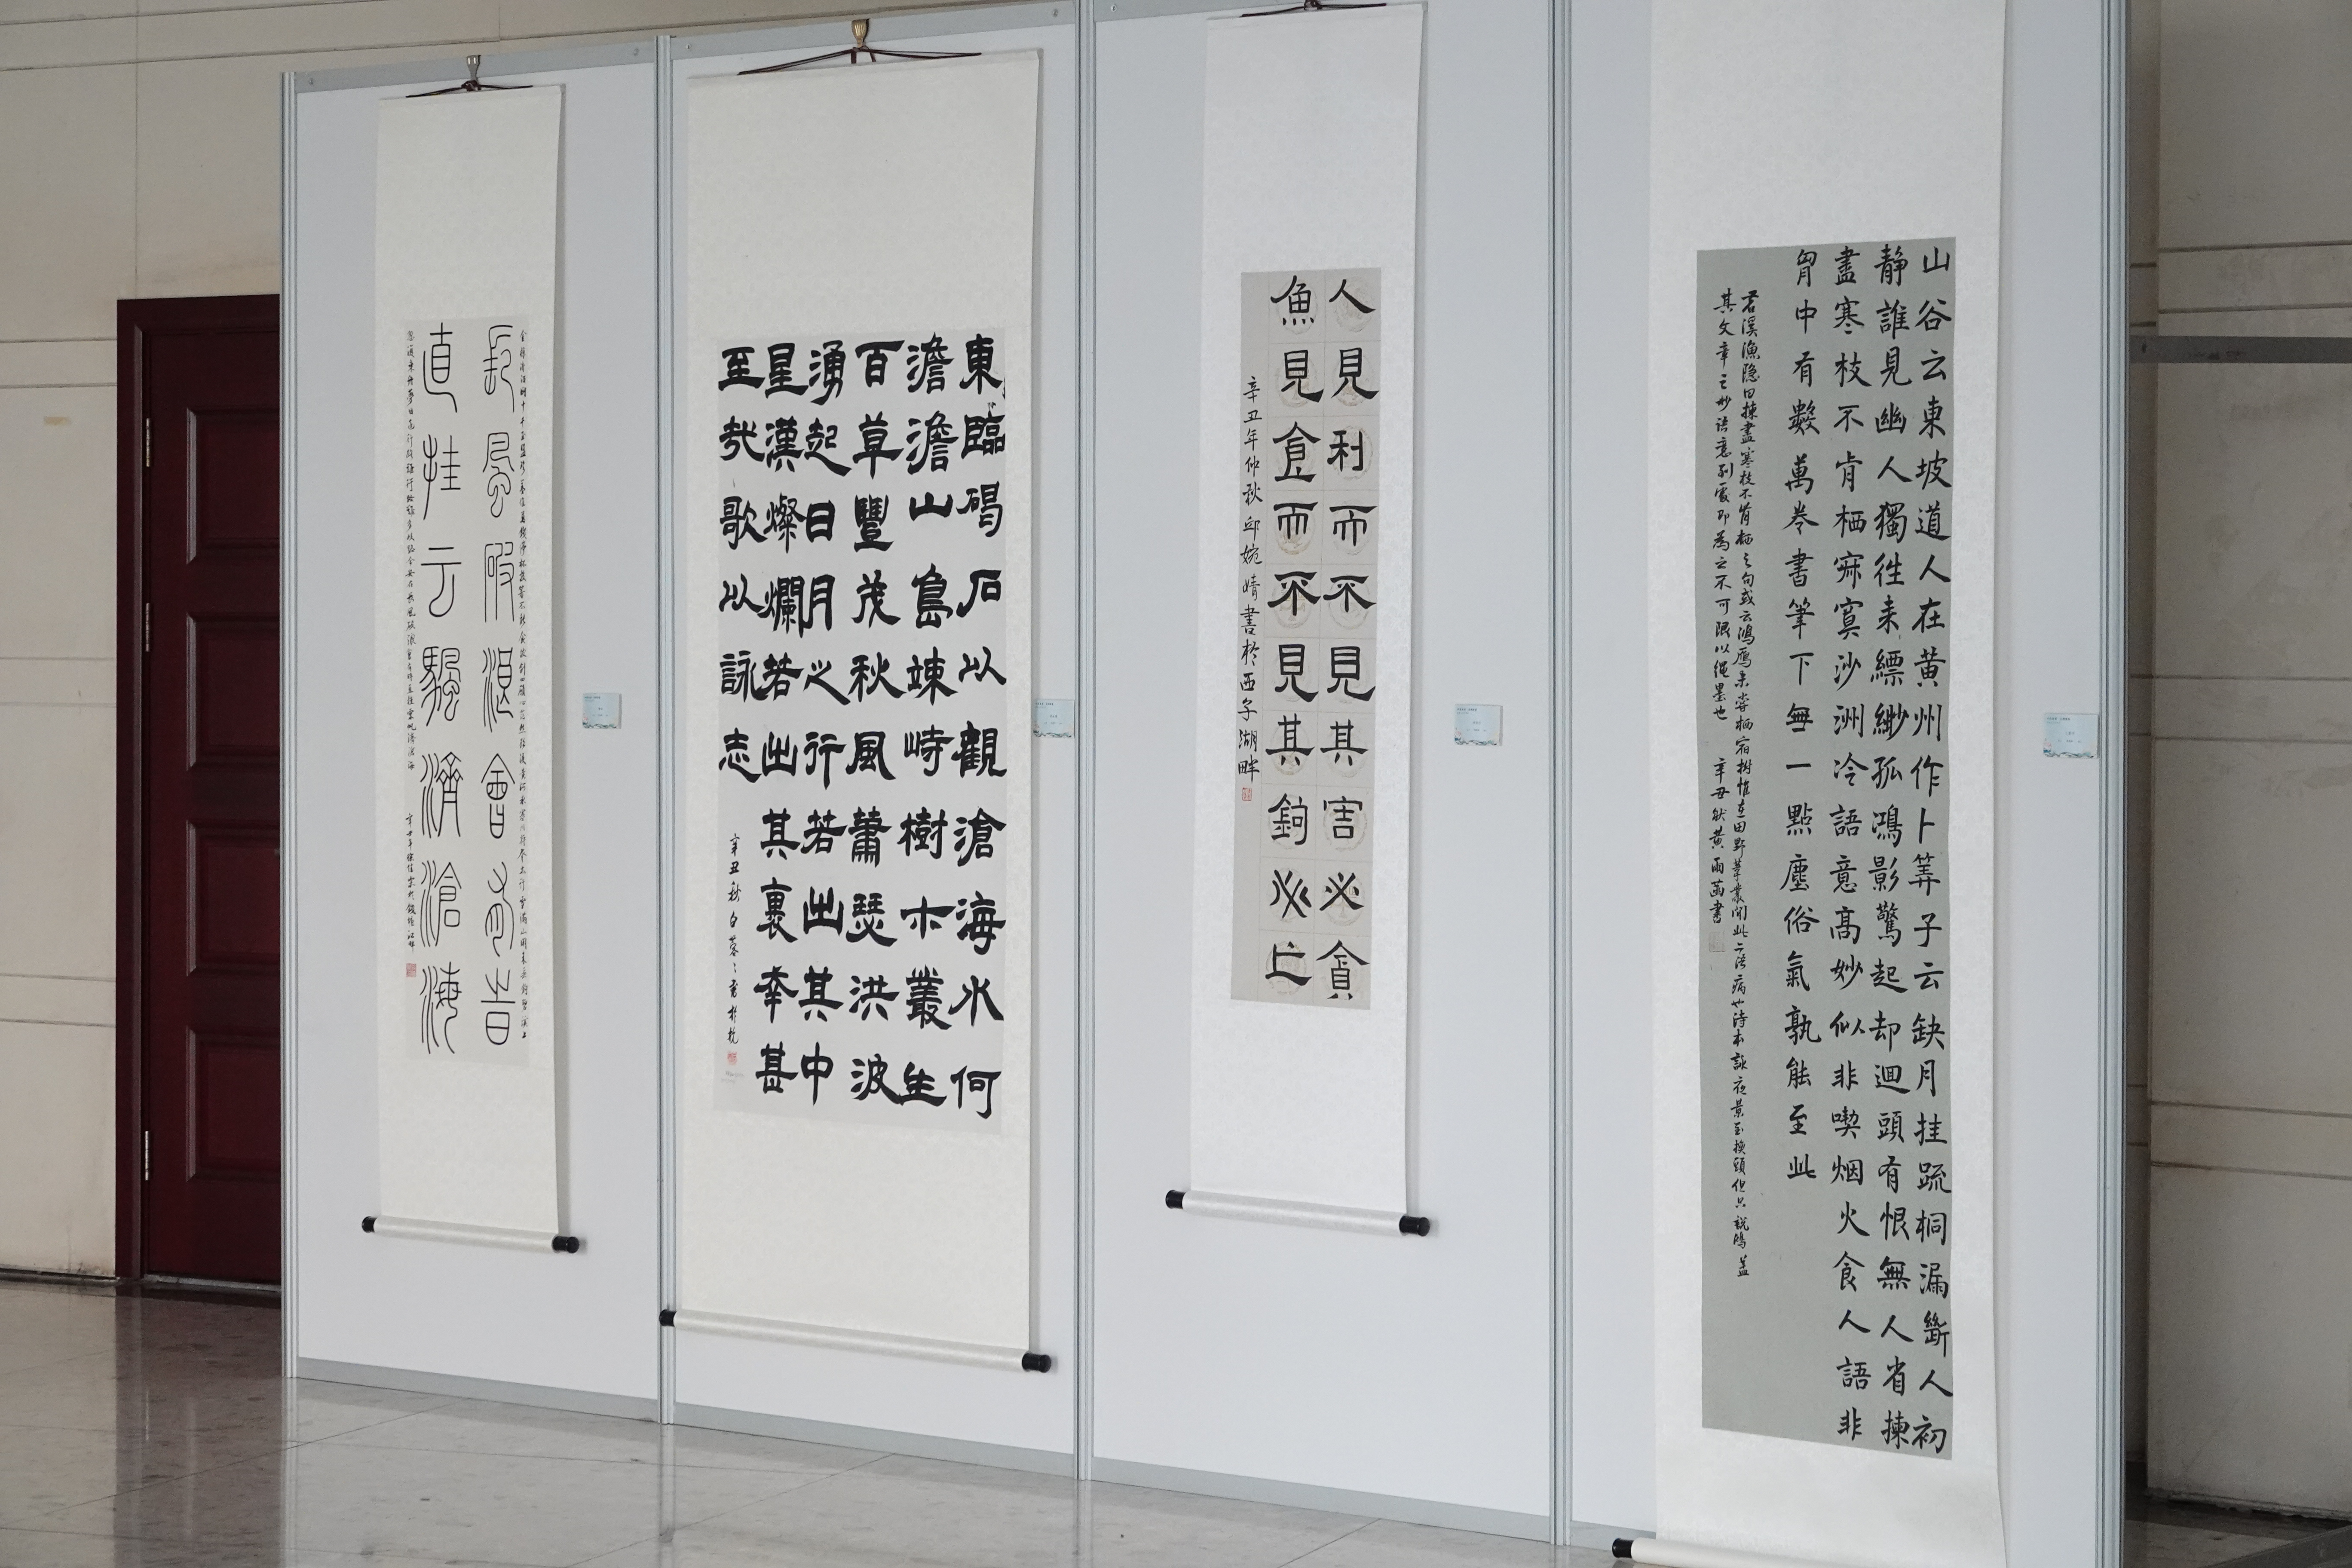 長風破浪會有時
直挂云帆濟滄海
東臨碣石以觀滄海水何
澹澹山島竦峙樹木叢生
百草豐茂秋風蕭瑟洪波
湧起日月之行若出其中
星漢燦爛若出其裏幸甚
至哉歌以詠志
辛丑秋白蓉々書於杭
人見利而不見其害必貪
魚見食而不見其鉤必亡
辛丑年仲秋邱婉婧書於西子湖畔
山谷云東坡道人在黄州作卜筭子云缺月挂疏桐漏斷人初
靜誰見幽人獨往来縹緲孤鴻影驚起却迴頭有恨無人省揀
盡寒枝不肯栖寂寞沙洲冷語意高妙似非喫烟火食人語非
胷中有數萬卷書筆下無一點塵俗氣孰能至此
苕溪漁隱曰揀盡寒枝不肯栖之句或云鴻鴈未嘗栖宿樹惟在田野葦叢間此亦語病也詩本詠夜景至換頭但只説鴻蓋
其文章之妙語意到處即為之不可限以繩墨也 辛丑秋黄雨菡書